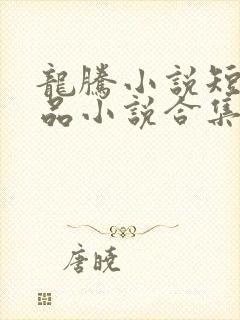 龍騰小說短
品小說合集
唐曉